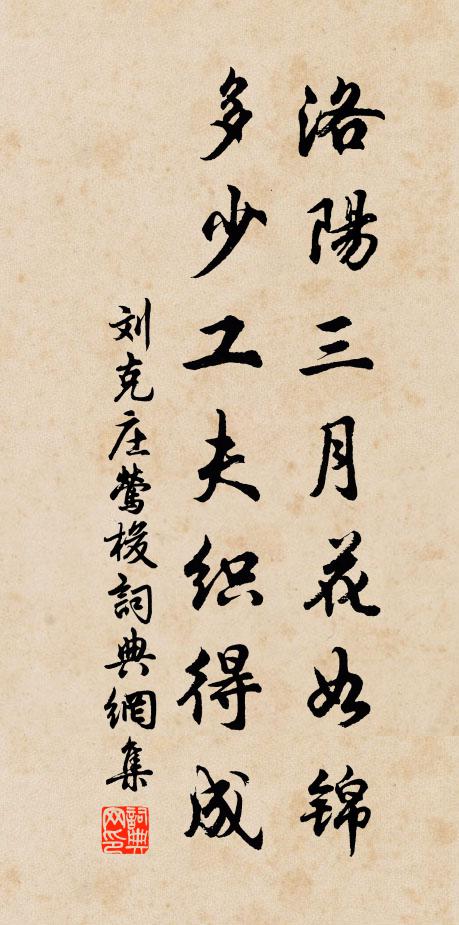 洛陽三月花如锦
多少工夫织得成
刘克庄莺梭詞典網集
詞典网印